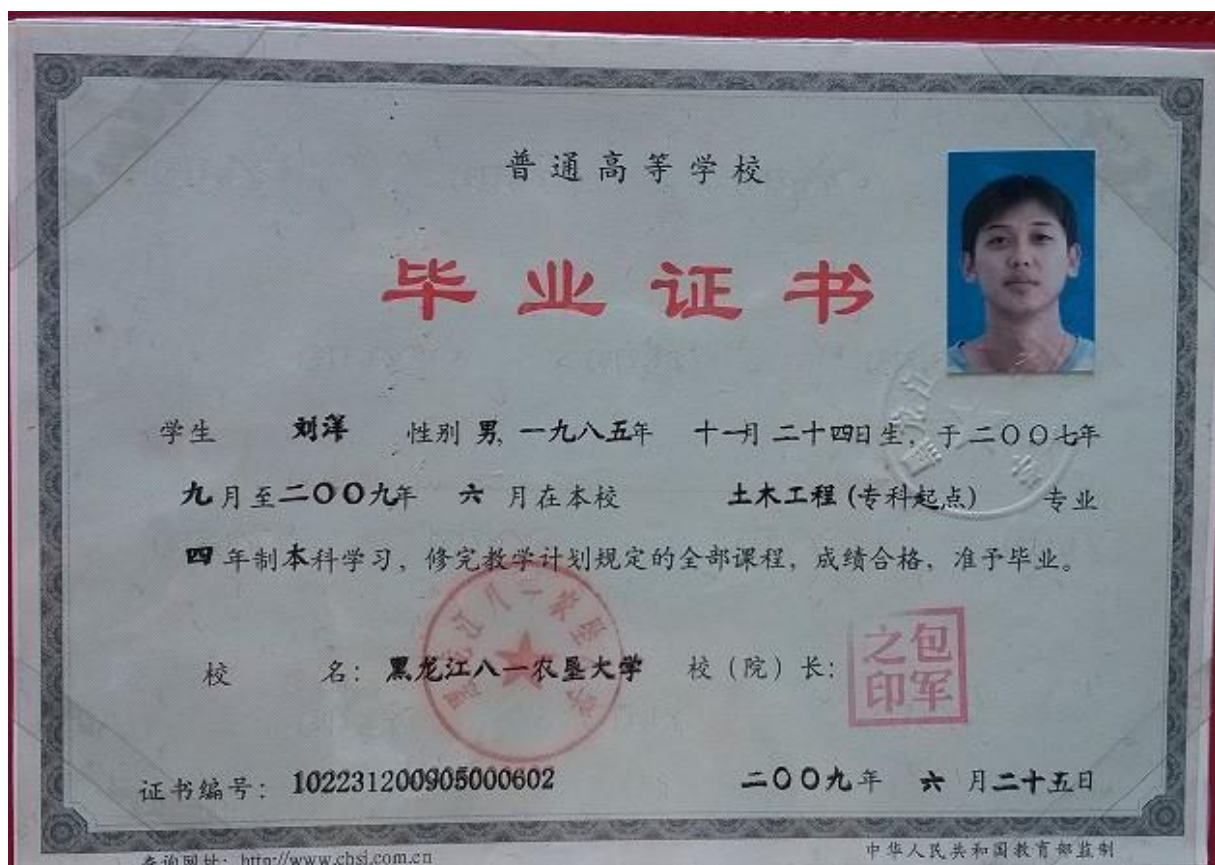 普通高等学校
毕业证书
学生 刘洋 性别 男, 一九八五年 十一月 二十四日生, 于二〇〇七年
九月至二〇〇九年 六 月在本校 土木工程 (专科起点) 专业
四 年制本科学习, 修完教学计划规定的全部课程, 成绩合格, 准予毕业。
校 名: 黑龙江八一农垦大学 校 (院) 长:
包军之印
证书编号: 102231200905000602 二〇〇九年 六 月二十五日
查询网址: http://www.chsi.com.cn 中华人民共和国教育部监制